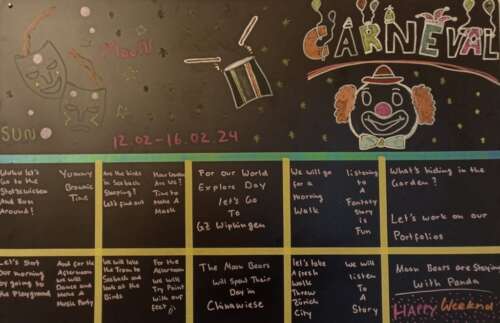 CARNEVAL
Moon
SUN
12.02-16.02.24
Wuhu let's
Go to the
Stolzewiesen
And Run
Around!
Yummy
Brownie
Time
Are the birds
in Seebach
Sleeping?
Let's find out
How Lovely
Are We?
Time to
Make A
Mask
For our World
Explore Day
let's Go
To
GZ Wipkingen
We will go
for a
Morning
Walk
listening
to
A
Fantasy
Story
is
Fun
What's hiding in the
Garden?
Let's work on our
Portfolios
Let's start
our morning
by going to
the Playground
And for the
Afternoon
we will
Dance and
Make A
Music Party
We will take
the Tram to
Seebach and
look at the
Birds
For the
Afternoon
we will
Try Paint
with our
feet
The Moon Bears
will Spent Their
Day in
Chinawiese
let's take
A fresh
walk
Threw
Zürich
City
We will
listen
To
A
Story
Moon Bears are Staying
with Panda
HAPPY Weekend